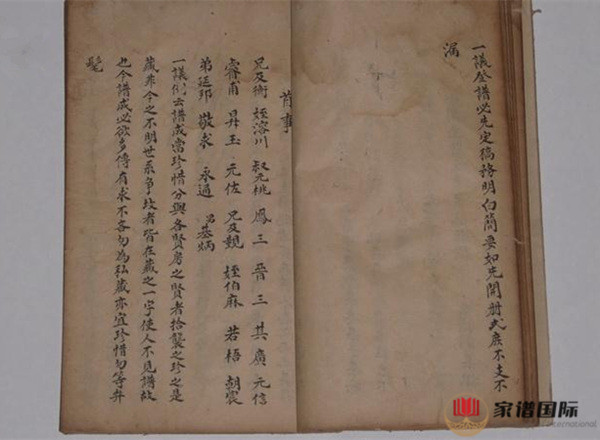 一議登譜必先定稿務明白簡要如先開冊式庶不支不
漏
首事
兄及衛 姪溶川 叔元桃 鳳三 晉三 其廣 元信
睿甫 昇玉 元佐 兄及覲 姪伯麻 若梧 朝宸
弟廷邦 敬求 永通 弟基炳
一議例云譜成當珍惜分與各賢房之賢者拾襲之珍之是
歲非今之不明世系爭坟者皆在藏之一字使人不見譜故
也今譜成必欲多傳有求不吝勿為私藏亦宜珍惜勿等弁
髦
家谱国际
International